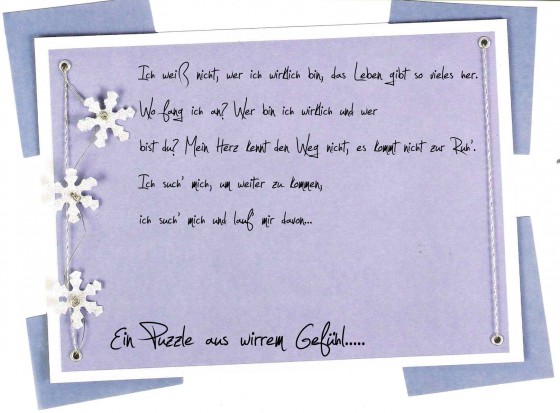 Ich weiß nicht, wer ich wirklich bin, das Leben gibt so vieles her.
Wo fang ich an? Wer bin ich wirklich und wer
bist du? Mein Herz kennt den Weg nicht, es kommt nicht zur Ruh'.
Ich such' mich, um weiter zu kommen,
ich such' mich und lauf mir davon...
Ein Puzzle aus wirrem Gefühl.....